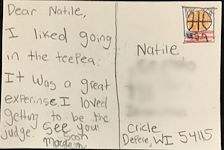 Dear Natile,
I liked going
in the teepea.
It was a great
experinse. I loved
getting to be the
judge. See you!
Natile
Cricle
Depere, WI 54115